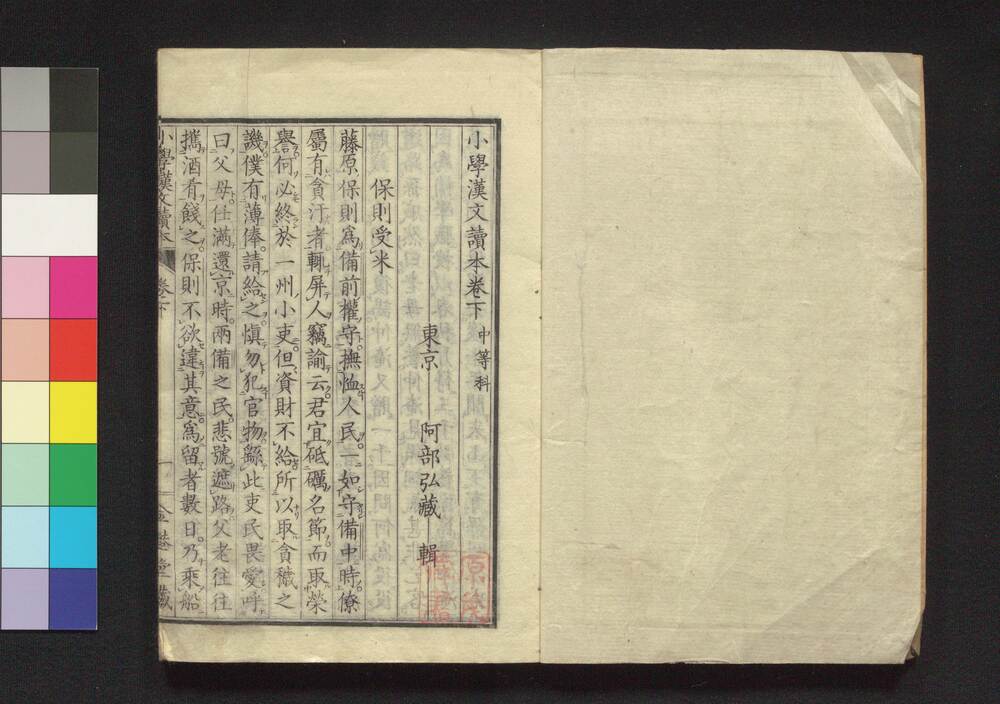 小學漢文讀本卷下 中等科
東京 阿部弘藏 輯
保則受米
藤原保則爲備前權守撫恤人民一如守備中時僚
屬有貪汙者輒屏人竊諭云君宜砥礪名節而取榮
譽何必終於一州小吏但資財不給所以取貪穢之
譏僕有薄俸請給之愼勿犯官物繇此吏民畏愛呼
曰父母仕滿還京時兩備之民悲號遮路父老往往
攜酒肴餞之保則不欲違其意爲留者數日乃乘船
小學漢文讀本 卷下 一 金 堂藏